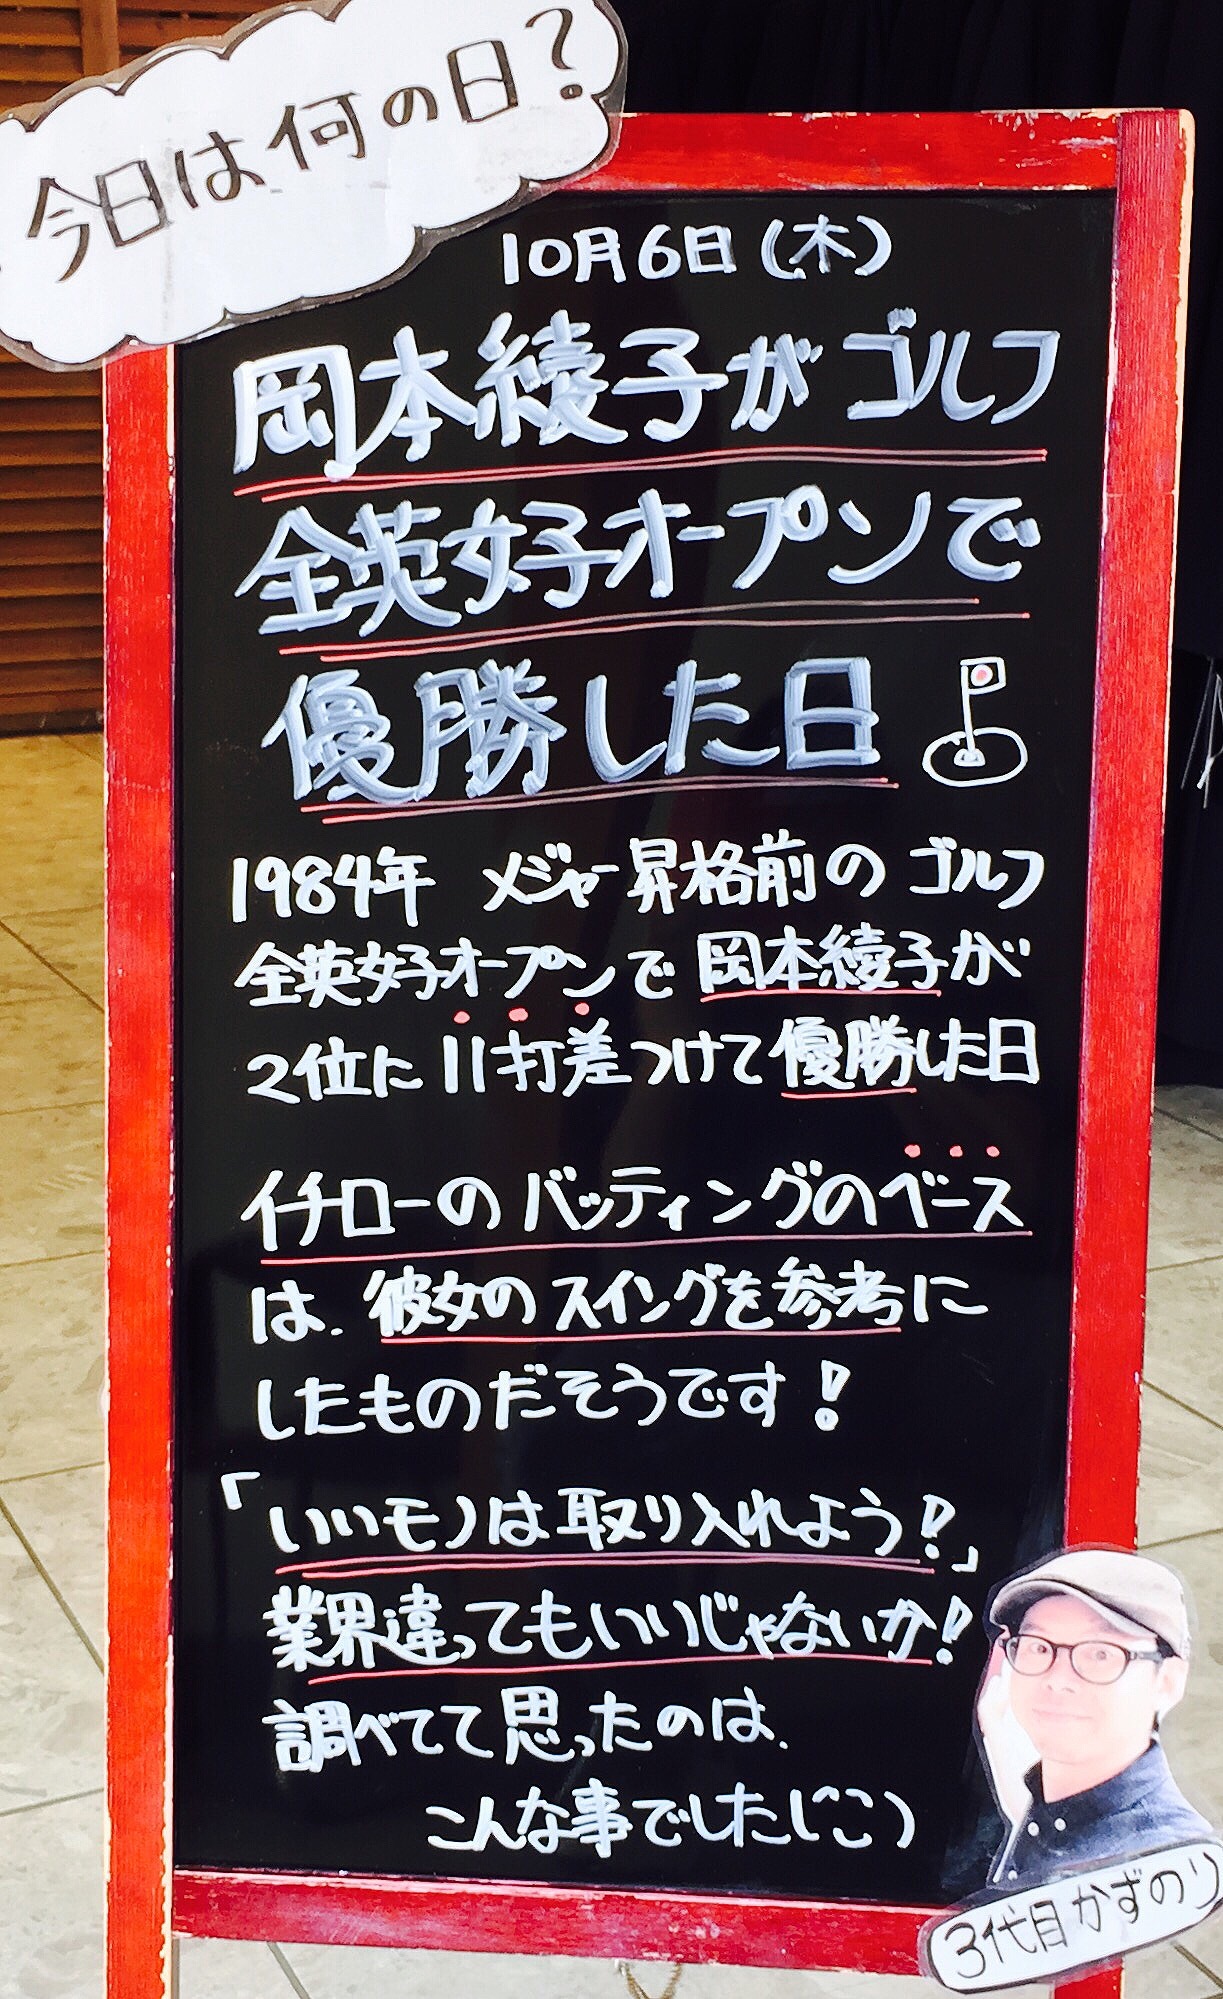 今日は何の日?
10月6日(木)
岡本綾子がゴルフ
全英女子オープンで
優勝した日
1984年 メジャー昇格前のゴルフ
全英女子オープンで岡本綾子が
2位に11打差つけて優勝した日
イチローのバッティングのベース
は、彼女のスイングを参考に
したものだそうです!
「いいモノは取り入れよう!」
業界違ってもいいじゃないか!
調べてて思ったのは、
こんな事でした(^こ)
3代目かずのり